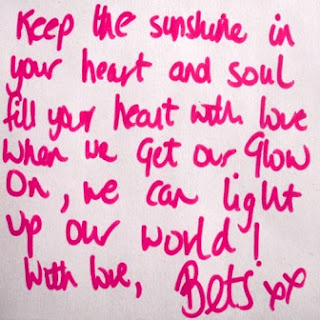 Keep the sunshine in
your heart and soul
fill your heart with love
when we Get our Glow
On, we can light
up our world!
With love, Bets xx